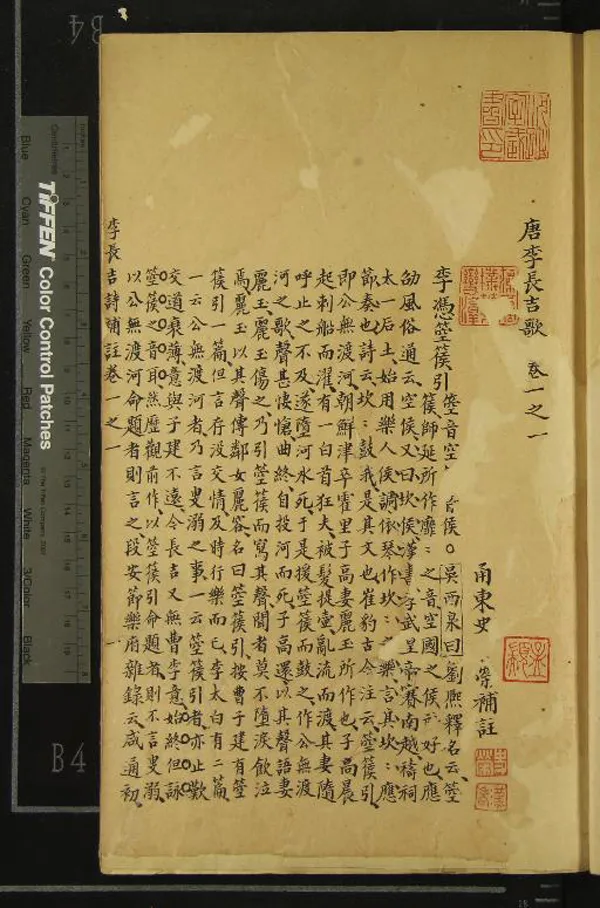 唐李長吉歌 卷一之一
甬東史 榮補註
李憑箜篌引 箜音空 音侯○吳西泉曰劉熙釋名云箜
篌師延所作靡〻之音空國之侯所好也應
劭風俗通云空侯又曰坎侯漢書孝武皇帝賽南越禱祠
太一后土始用樂人侯調依琴作坎〻之樂言其坎〻應
節奏也詩云坎〻鼓我是其文也崔豹古今注云箜篌引
即公無渡河朝鮮津卒霍里子高妻麗玉所作也子高晨
起刺船而濯有一白首狂夫被髮提壺亂流而渡其妻隨
呼止之不及遂墮河水死于是援箜篌而鼓之作公無渡
河之歌聲甚悽愴曲終自投河而死子高還以其聲語妻
麗玉麗玉傷之乃引箜篌而寫其聲聞者莫不墮淚飲泣
焉麗玉以其聲傳鄰女麗容名曰箜篌引按曹子建有箜
篌引一篇但言存沒交情及時行樂而已李太白有二篇
一云公無渡河者乃言叟溺之事一云箜篌引者亦止歎
交道衰薄意與子建不遠今長吉又無曹李意始終但詠
箜篌之音耳然歷觀前作以箜篌引命題者則不言叟溺
以公無渡河命題者則言之段安節樂府雜錄云咸通初
李長吉詩補註卷一之一 一
TIFFEN Color Control Patches
Blue Cyan Green Yellow Red Magenta White 3/Color Black
Centimetres
B4
B4